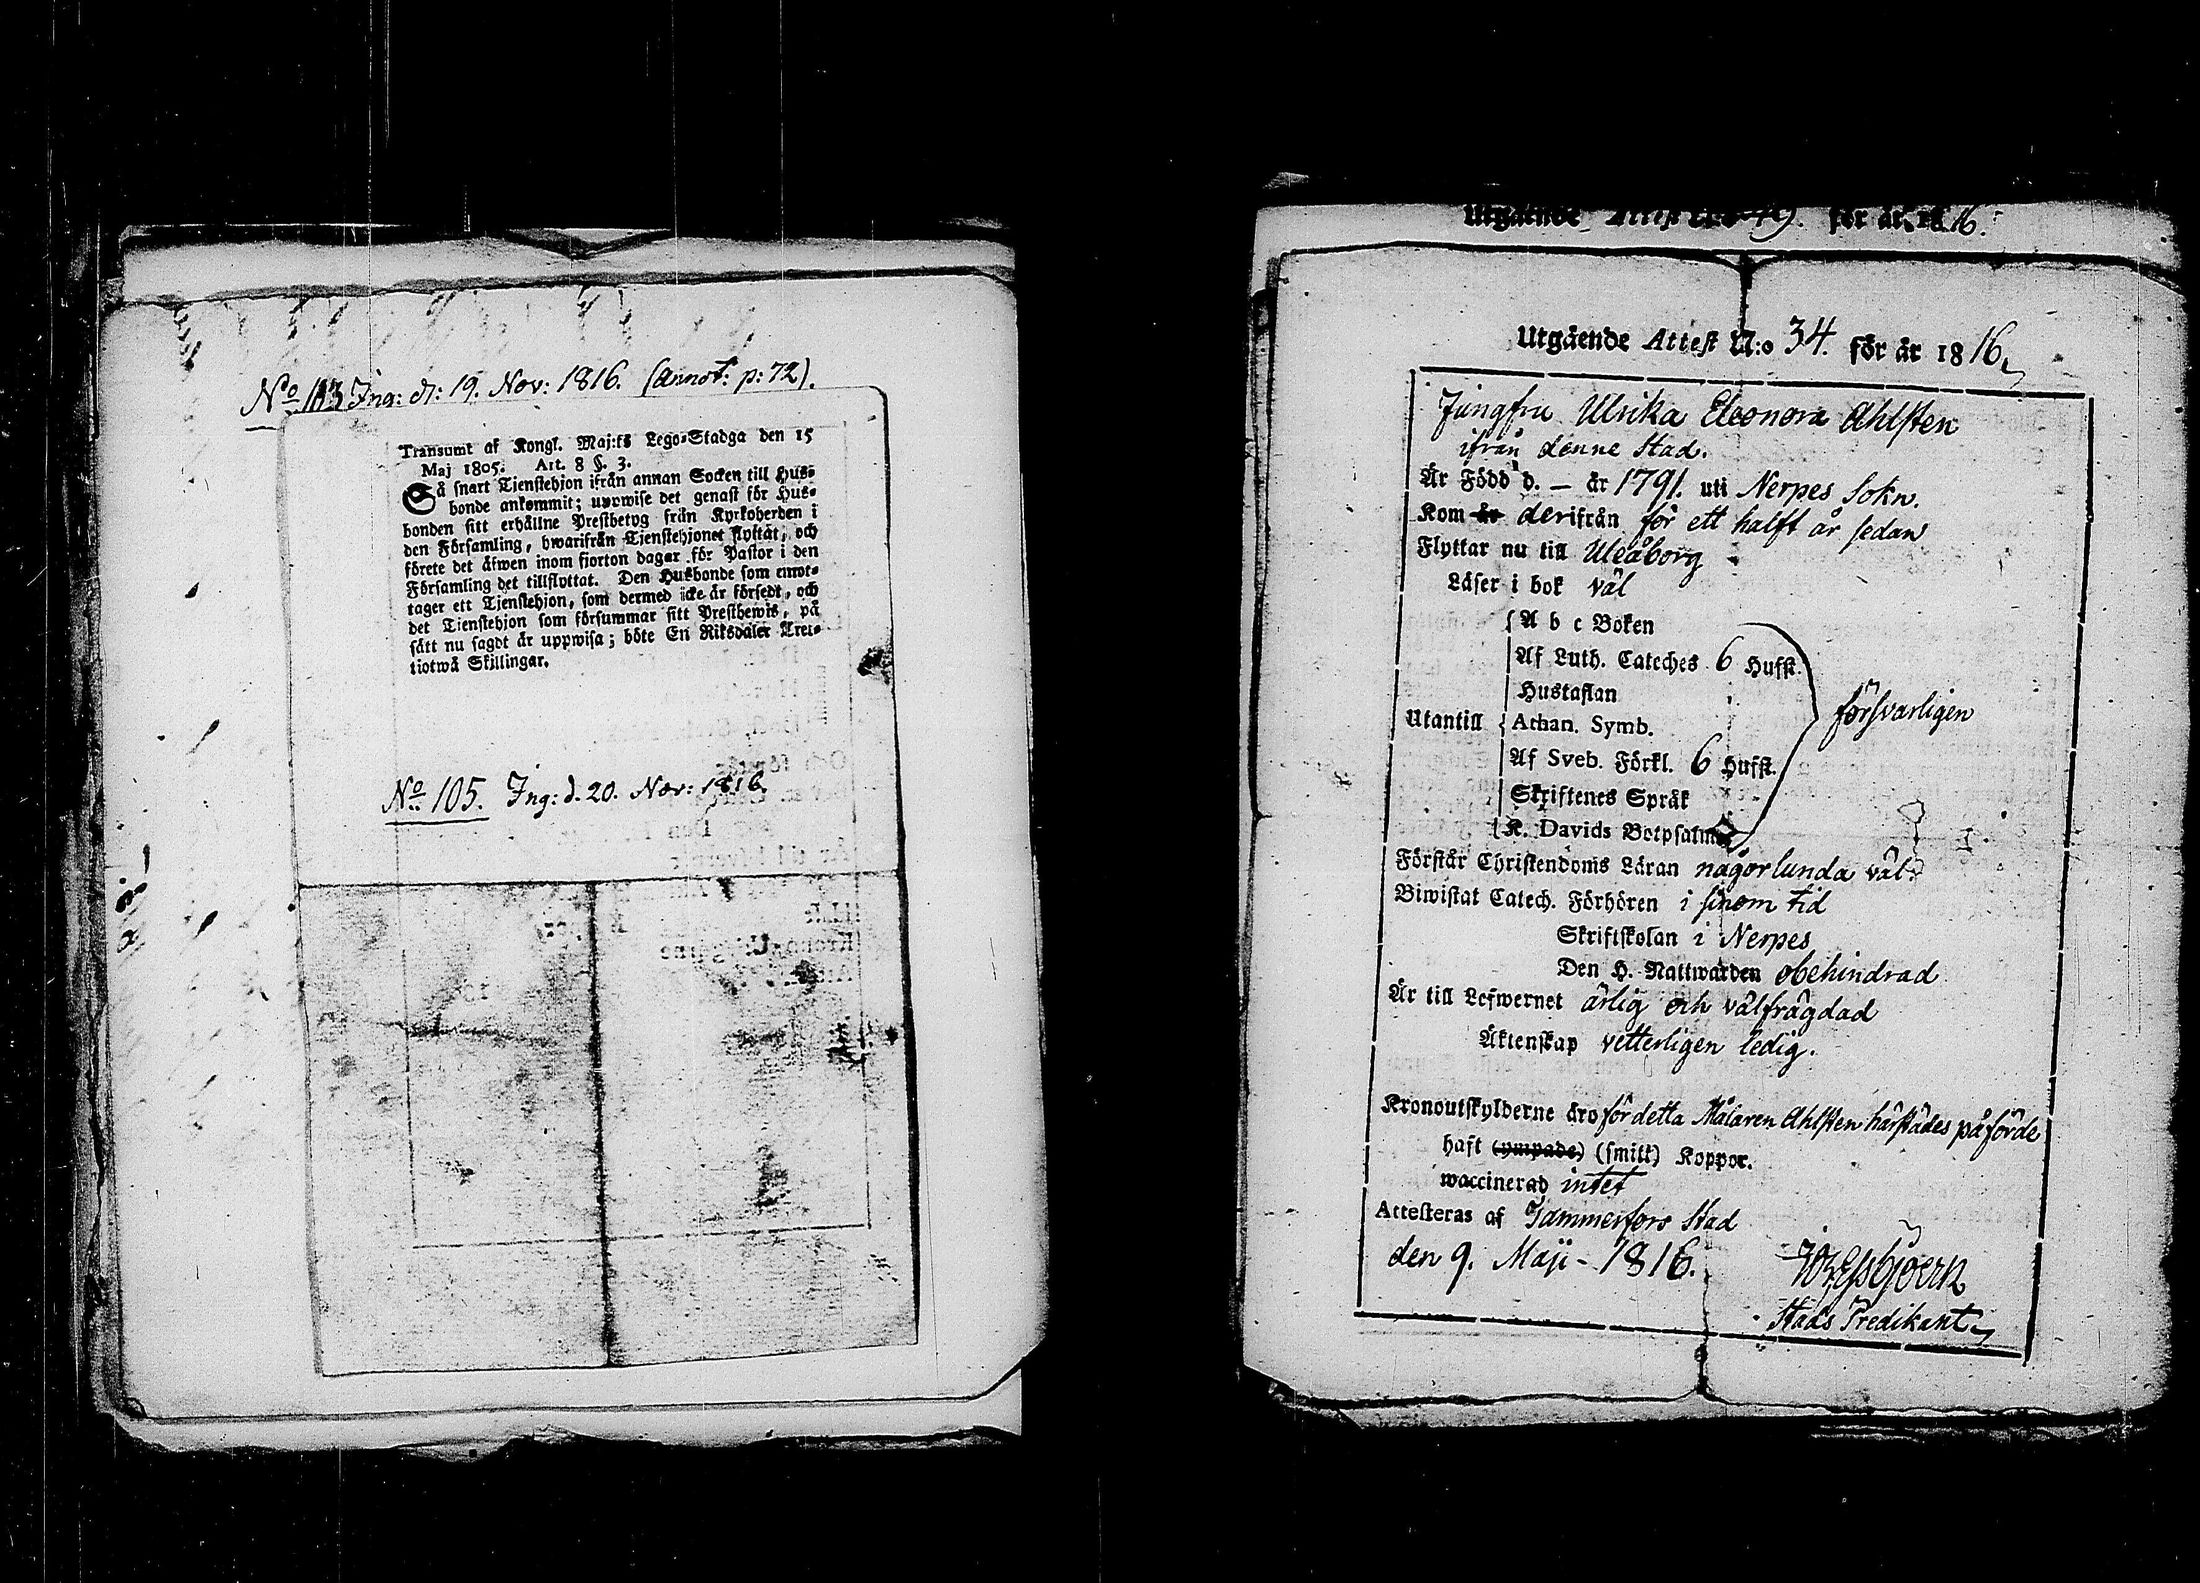 No 103 Ing: d: 19. Nov: 1816. (Annot: p: 72).
Transumt af Kongl. Maj:ts Lego-Stadga den 15
Maj 1805. Art. 8 §. 3.
Så snart Tjenstehjon ifrån annan Socken till Hus-
bonde ankommit; uppwise det genast för Hus-
bonden sitt erhållne Prestbetyg från Kyrkoherden i
den Församling, hwarifrån Tjenstehjonet flyttat, och
förete det äfwen inom fjorton dagar för Pastor i den
Församling det tillflyttat. Den Husbonde som emot-
tager ett Tjenstehjon, som dermed icke är försedt, och
det Tjenstehjon som försummar sitt Prestbewis, på
sätt nu sagdt är uppwisa; böte En Riksdaler Tret-
tiotwå Skillingar.
No 105. Ing: d. 20. Nov: 1816.
Utgående Attest N:o 49. för år 1816.
Utgående Attest N:o 34. för år 1816.
Jungfru Ulrika Eleonora Ahlsten
ifrån denne Stad.
Är Född d. — år 1791. uti Nerpes Sokn.
Kom år derifrån för ett halft år sedan
Flyttar nu till Uleåborg
Läser i bok väl
A b c Boken
Af Luth. Cateches 6 Hufst.
Hustaflan
Utantill Athan. Symb. försvarligen
Af Sveb. Förkl. 6 Hufst.
Skriftenes Språk
K. Davids Botpsalmer
Förstår Christendoms Läran någorlunda väl.
Biwistat Catech. Förhören i sinom tid
Skriftskolan i Nerpes
Den H. Nattwarden obehindrad
Är till Lefwernet ärlig och välfrägdad
Äktenskap vetterligen ledig.
Kronoutskylderne äro för detta Målaren Ahlsten härstädes påförde
haft (ympade) (smitt) Koppor.
waccinerad intet
Attesteras af Tammerfors Stad
den 9. Maji - 1816.
Stads Predikant